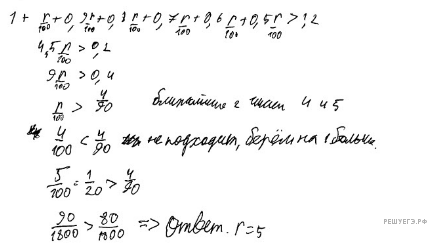 1 + r/100 + 0,9r/100 + 0,8r/100 + 0,7r/100 + 0,6r/100 + 0,5r/100 > 1,2
4,5r/100 > 0,2
9r/100 > 0,4
r/100 > 4/90 ближайшие 2 числа 4 и 5
4/100 < 4/90 не подходит, берём на 1 больше.
5/100 = 1/20 > 4/90
90/1800 > 80/1800 => Ответ. r=5
РЕШУЕГЭ.РФ